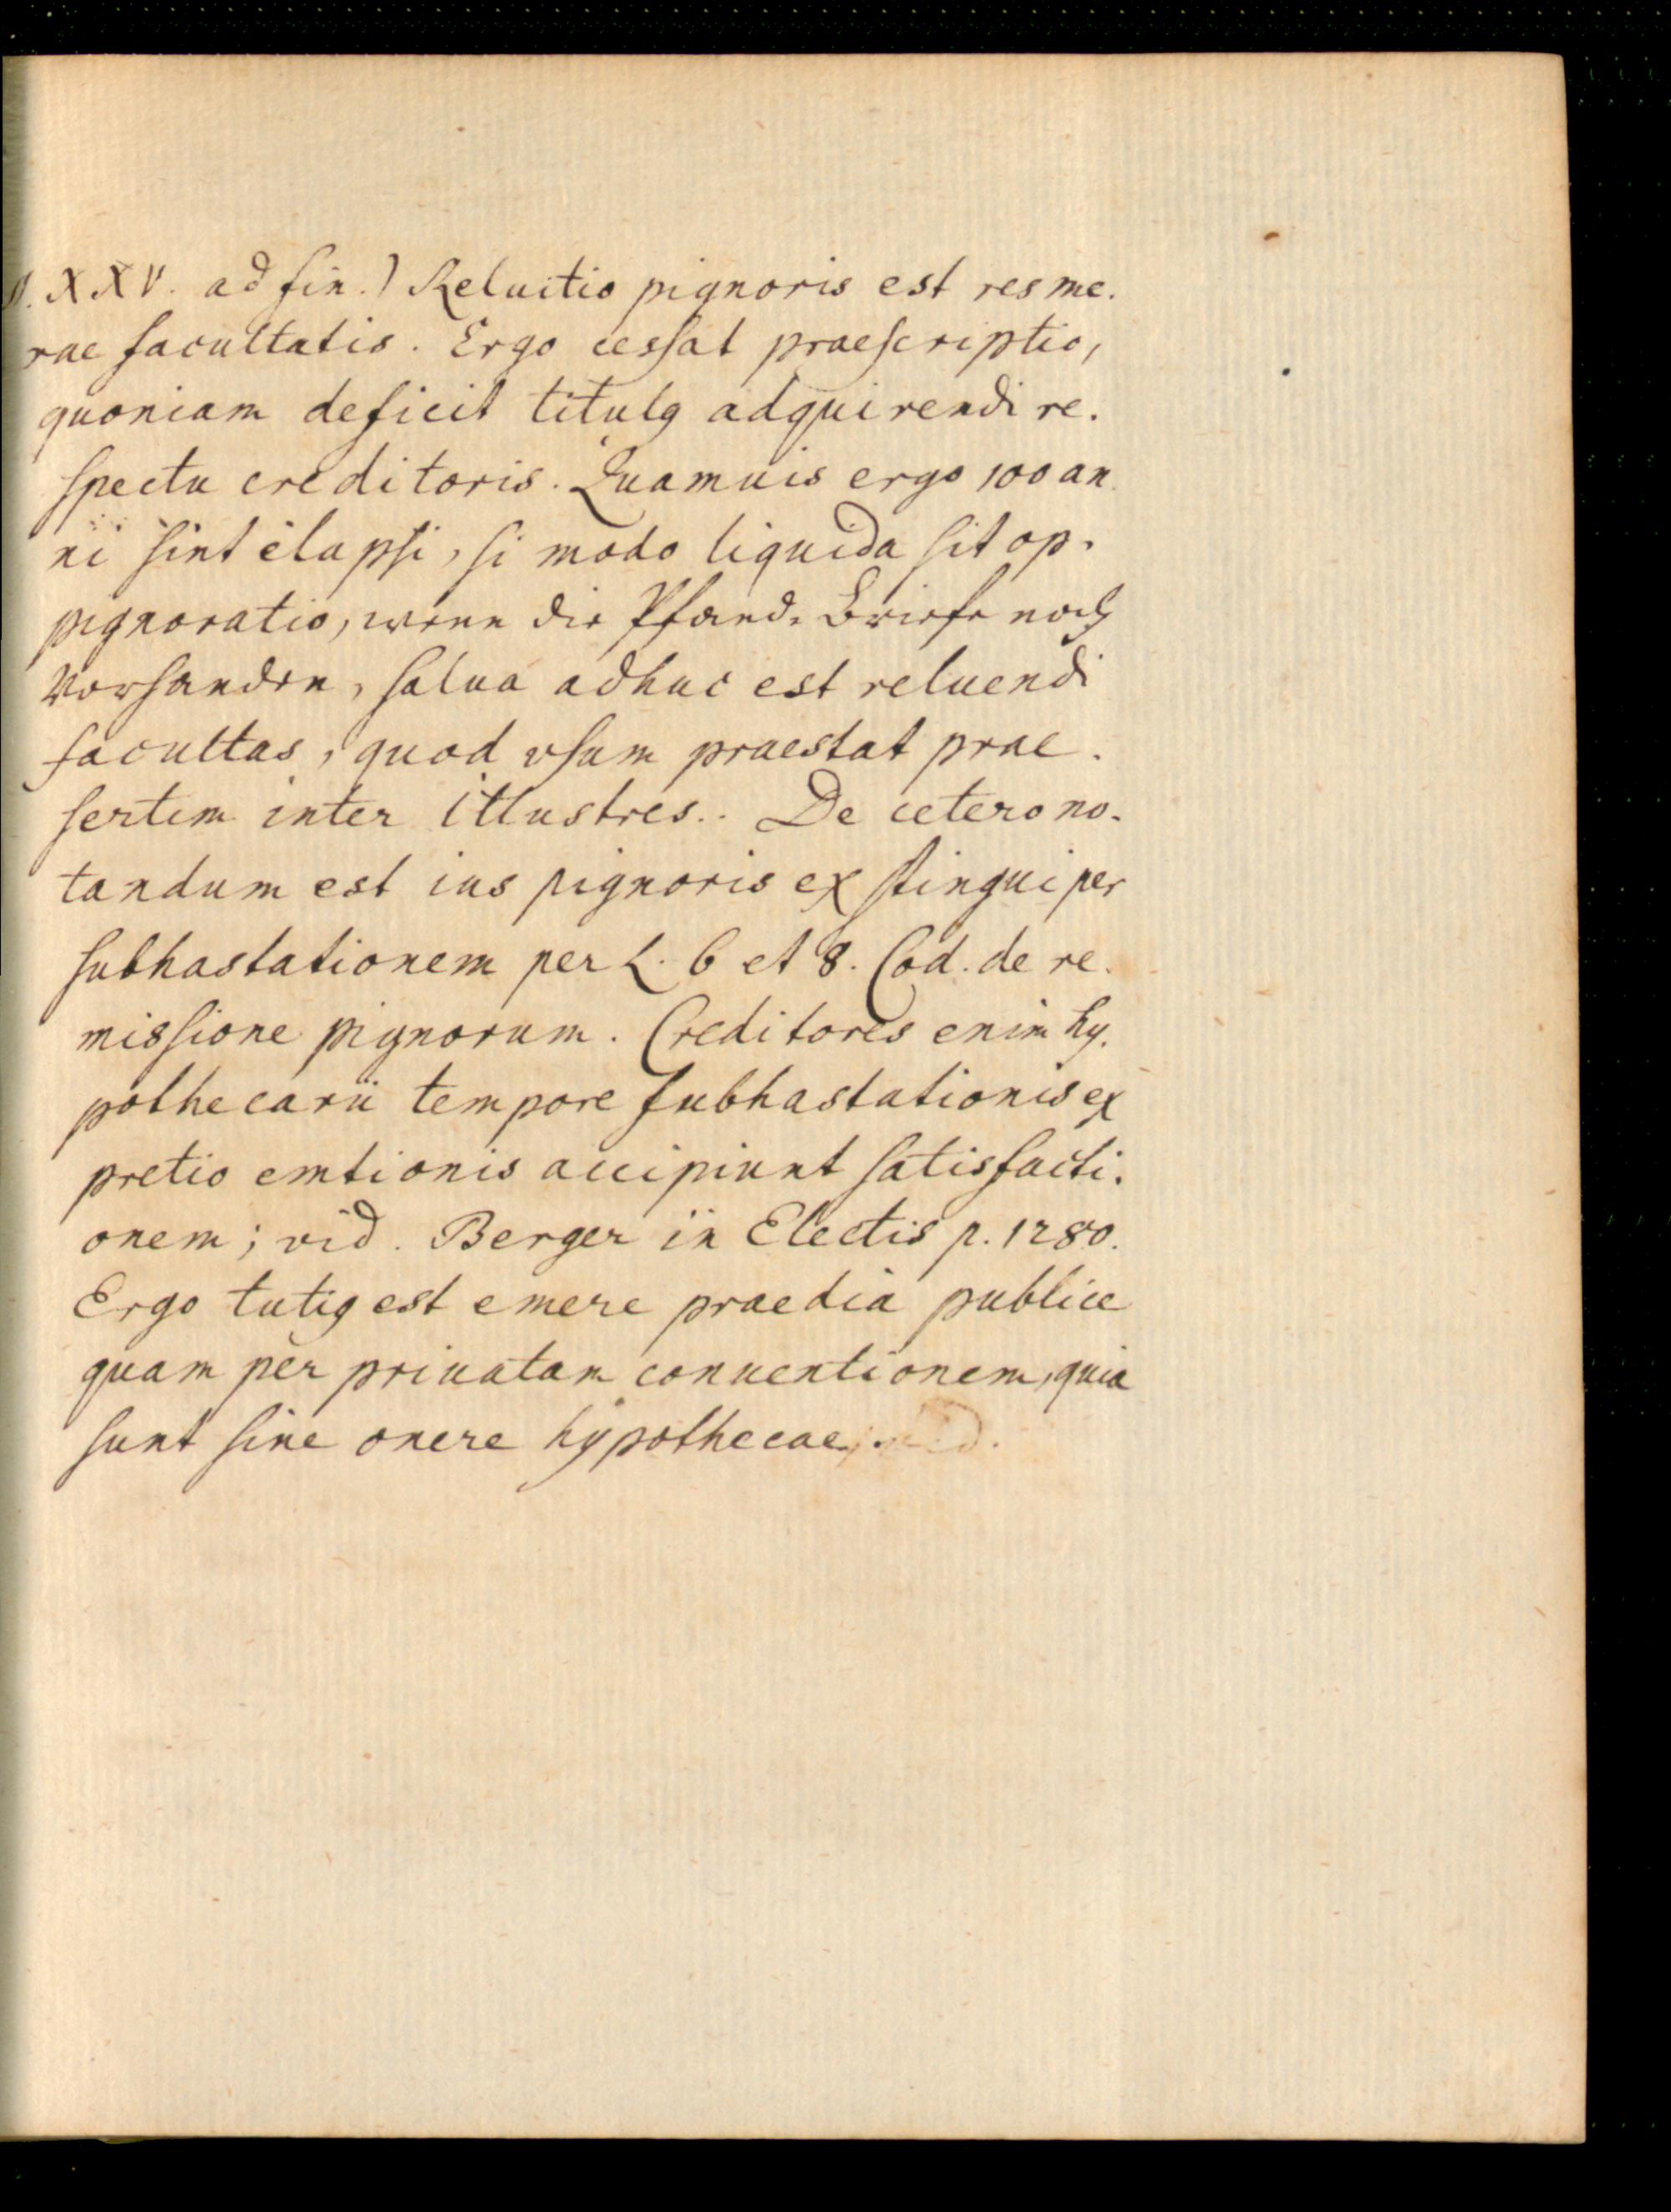 §. XXV. ad fin.) Reluitio pignoris est res me.
rae facultatis. Ergo cessat praescriptio,
quoniam deficit titulꝰ adquirendi re.
spectu creditoris. Quamuis ergo 100 an.
ni sint elapsi, si modo liquida sit op.
pignoratio, wenn die Pfand. Briefe noch
vorhanden, salua adhuc est reluendi
facultas, quod vsum praestat prae.
sertim inter illustres.. De cetero no.
tandum est ius pignoris exstingui per
subhastationem per L. 6 et 8. Cod. de re.
missione pignorum. Creditores enim hy.
pothecarii tempore subhastationis ex
pretio emtionis accipiunt satisfacti.
onem; vid. Berger in Electis p. 1280.
Ergo tutiꝰ est emere praedia publice
quam per priuatam conuentionem, quia
sunt sine onere hypothecae.